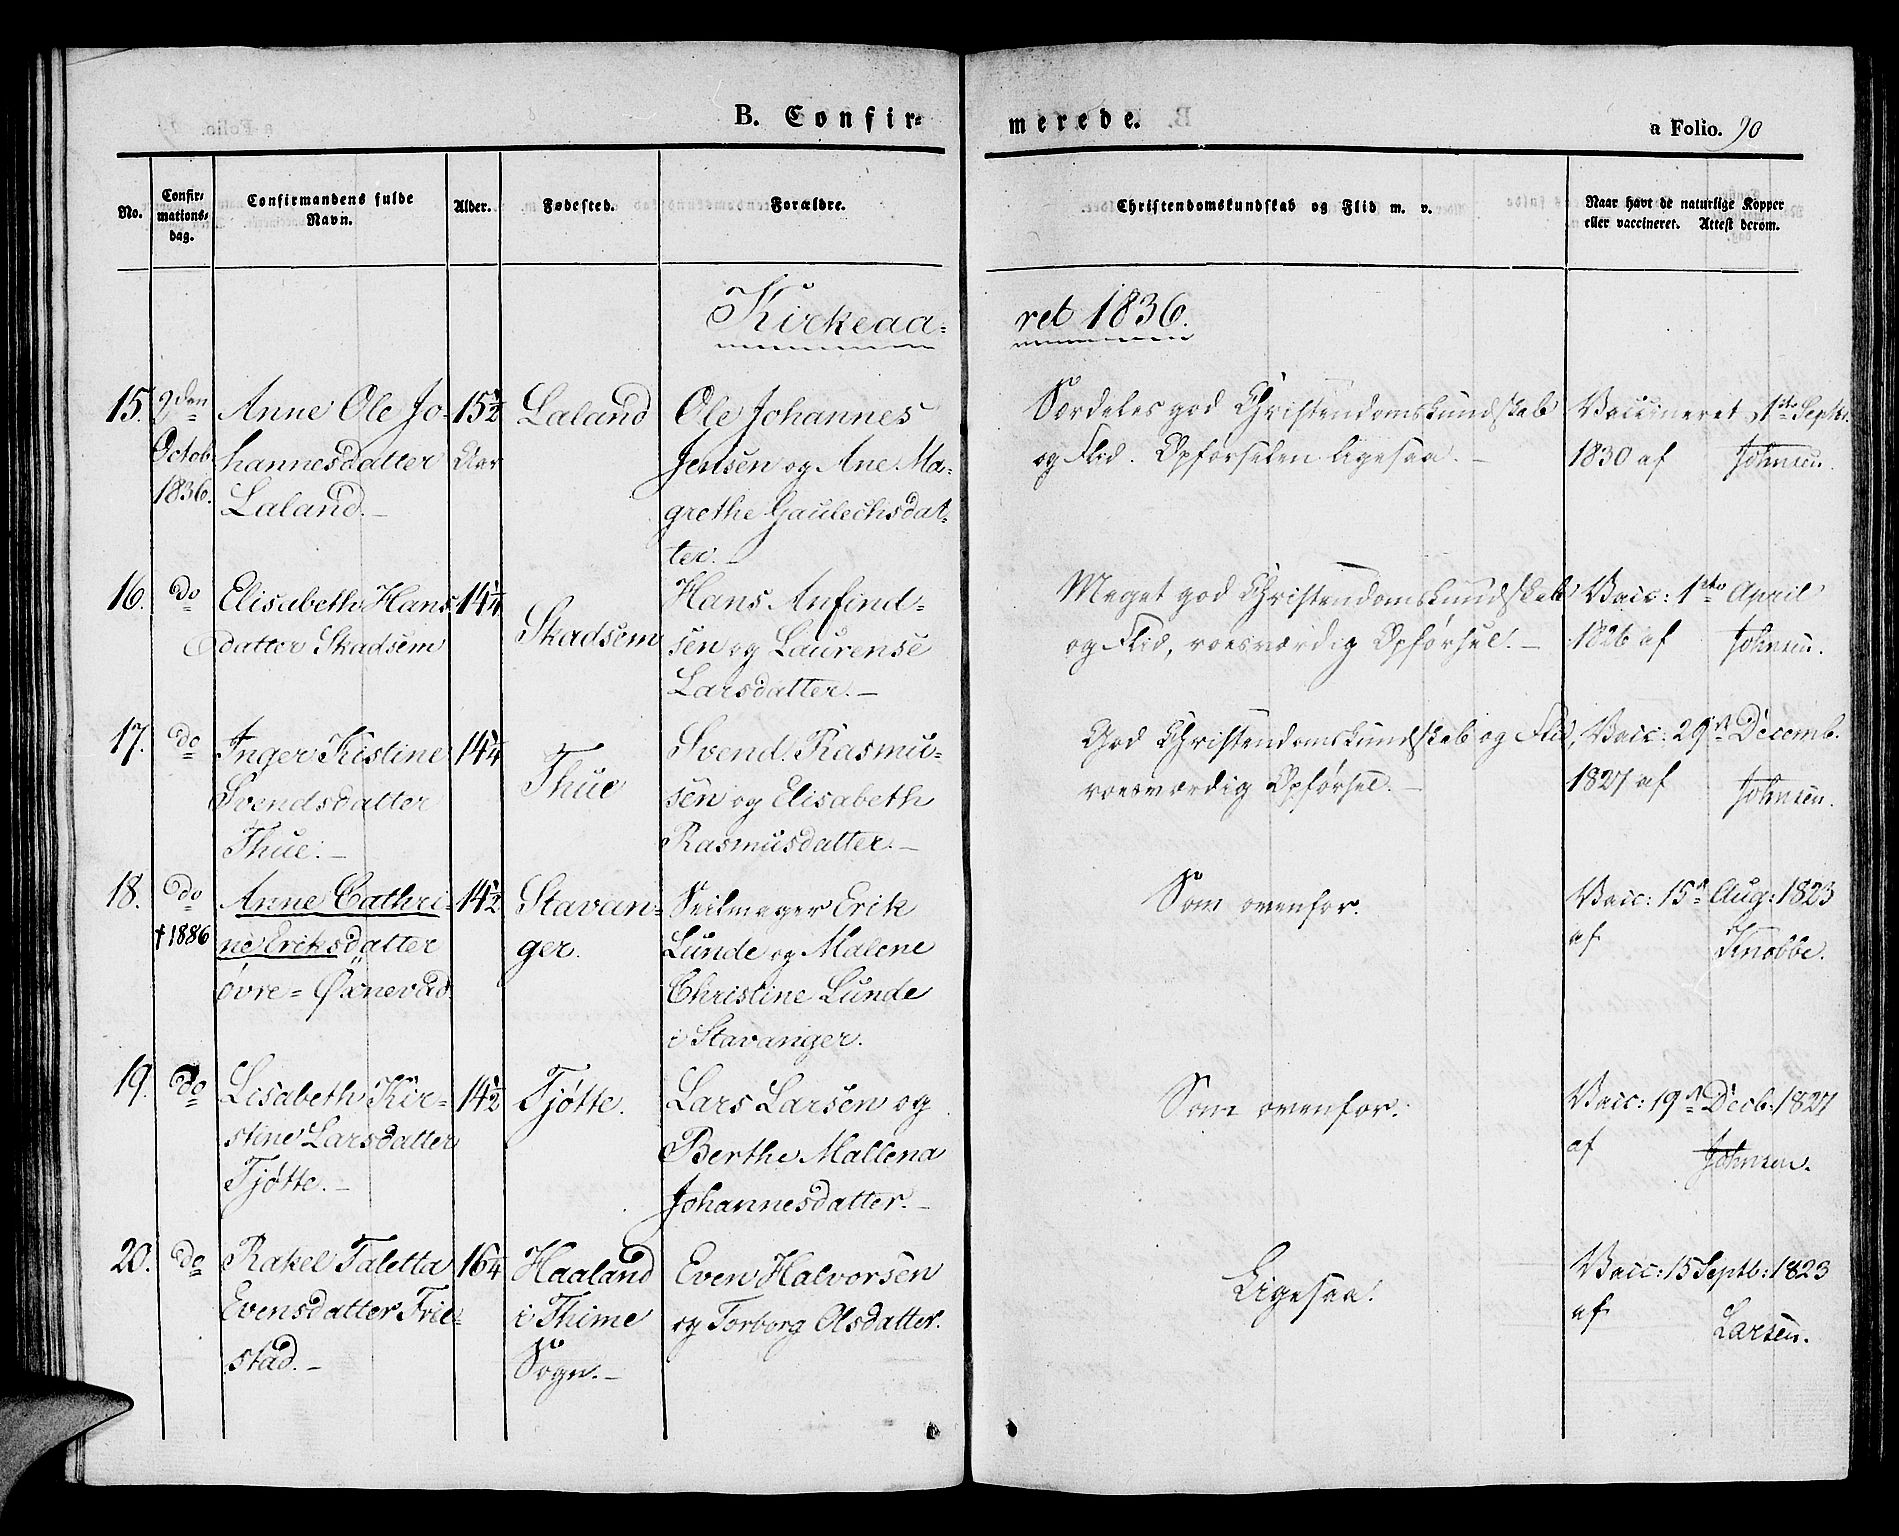 B. Confir=
merede.
a Folio. 90
No.
Confir-
mations-
dag.
Confirmandens fulde
Navn.
Alder.
Fødested.
Forældre.
Christendomskundskab og Flid m. v.
Naar havt de naturlige Kopper
eller vaccineret. Attest derom.
Kirkeaa=
ret 1836.
15. 2den Anne Ole Jo- 15½ Laland Ole Johannes Særdeles god Christendomskundskab Vaccineret 1ste Septbr.
Octob. hannesdatter Aar Jensen og Ane Ma- og Flid. Opførselen ligesaa. – 1830 af Johnsen.
1836. Laland. – grethe Gaulechsdat-
ter. –
16. do Elisabeth Hans 14¼ Skadsem Hans Anfind- Meget god Christendomskundskab Vacc: 1ste April
datter Skadsem sen og Laurense og Flid, roesværdig Opførsel. – 1826 af Johnsen.
Larsdatter. –
17. do Inger Kistine 14¼ Thue Svend Rasmu- God Christendomskundskab og Flid, Vacc: 29de Decemb.
Svendsdatter sen og Elisabeth roesværdig Opførsel. – 1827 af Johnsen.
Thue. – Rasmusdatter. –
18. do Anne Cathri- 14½ Stavan- Seilmager Erik Som ovenfor. Vacc: 15de Aug: 1823
† 1886 ne Eriksdatter ger. Lunde og Malene af Knobbe.
øvre= Øxnevad. Christine Lunde
i Stavanger.
19. do Lisabeth Kir- 14½ Tjøtte. Lars Larsen og Som ovenfor. Vacc: 19de Decb: 1827
stine Larsdatter Berthe Mallena af Johnsen.
Tjøtte. – Johannesdatter. –
20. do Rakel Taletta 16¼ Haaland Even Halvorsen Ligesaa. Vacc: 15 Septb: 1823
Evensdatter Frie- i Thime og Torborg Olsdatter. af Larsen.
stad. – Sogn. –